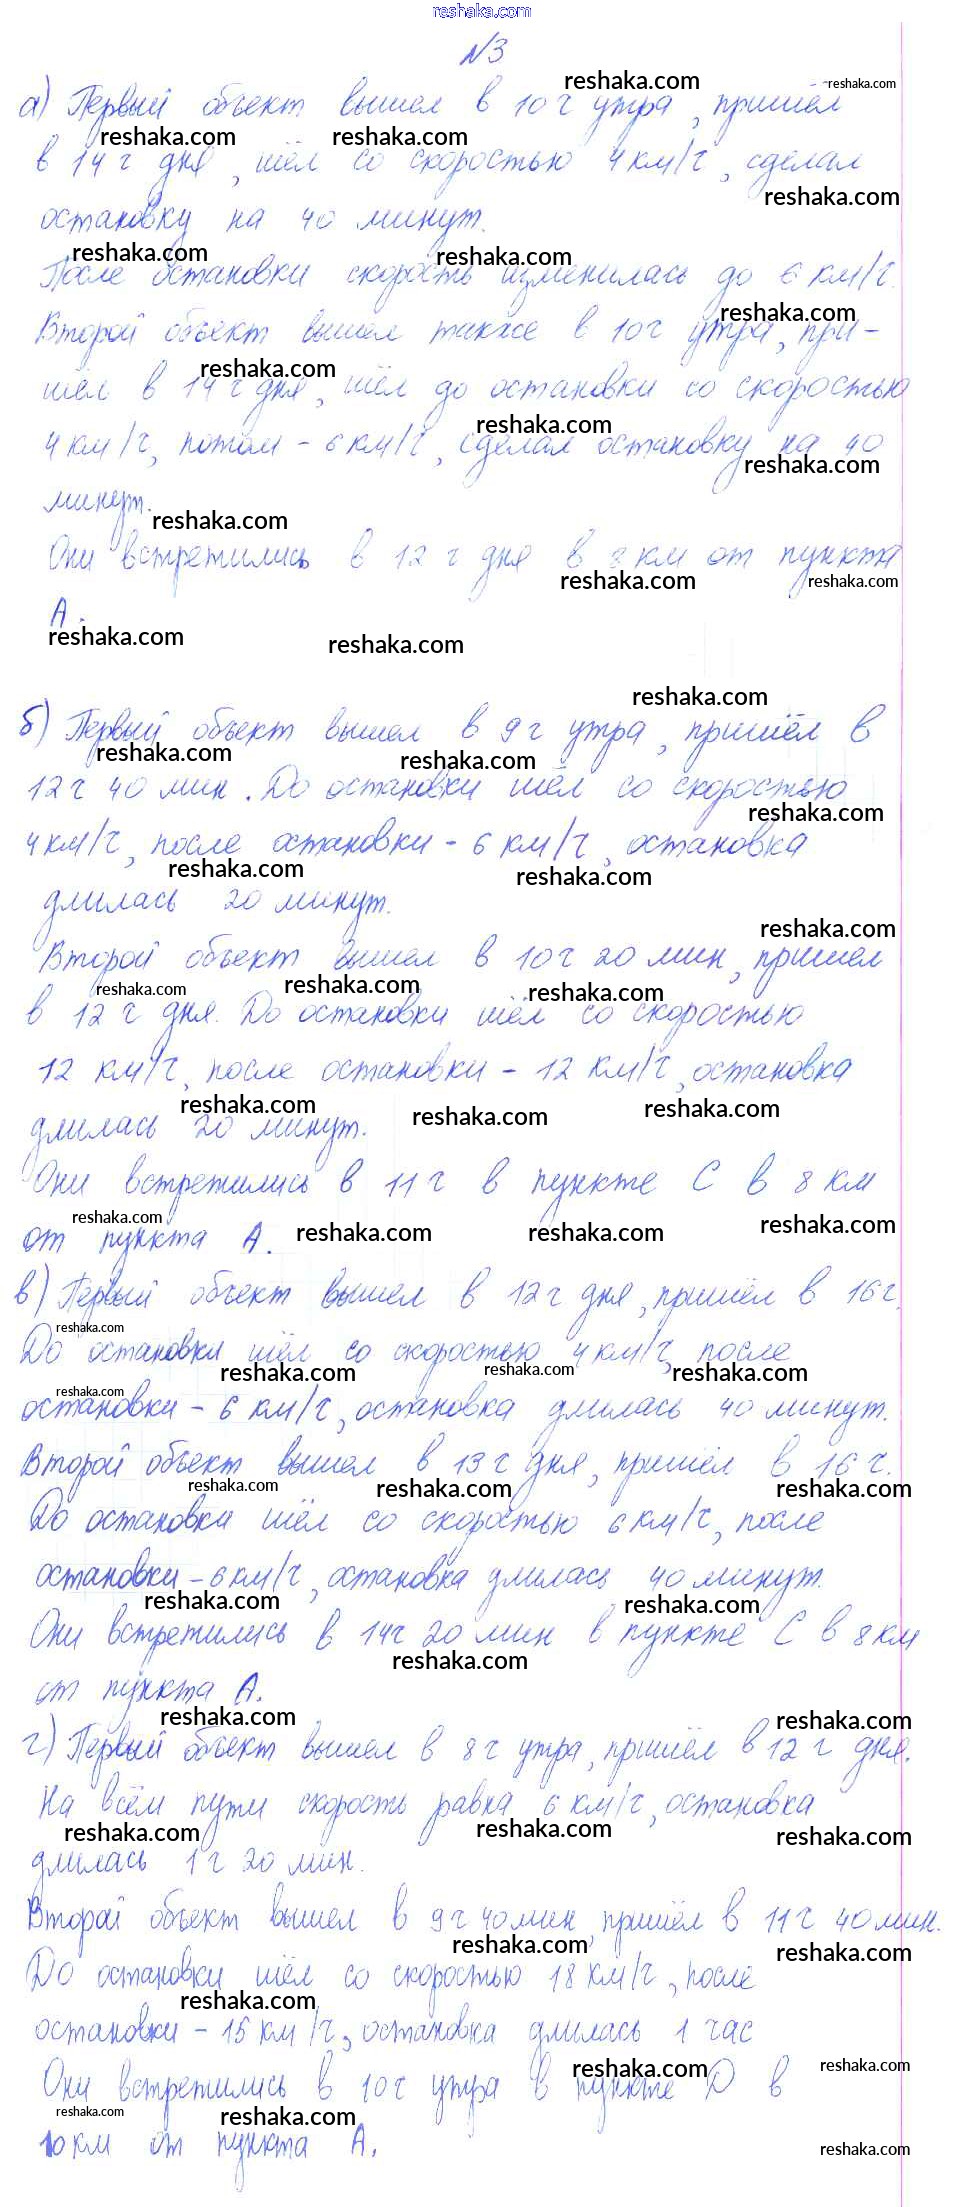 reshaka.com
№3
а) Первый объект вышел в 10 ч утра, пришёл
в 14 ч дня, шёл со скоростью 4 км/ч, сделал
остановку на 40 минут.
После остановки скорость изменилась до 6 км/ч.
Второй объект вышел также в 10 ч утра, при-
шёл в 14 ч дня, шёл до остановки со скоростью
4 км/ч, потом - 6 км/ч, сделал остановку на 40
минут.
Они встретились в 12 ч дня в 8 км от пункта
А.
б) Первый объект вышел в 9 ч утра, пришёл в
12 ч 40 мин. До остановки шёл со скоростью
4 км/ч, после остановки - 6 км/ч, остановка
длилась 20 минут.
Второй объект вышел в 10 ч 20 мин, пришел
в 12 ч дня. До остановки шёл со скоростью
12 км/ч, после остановки - 12 км/ч, остановка
длилась 20 минут.
Они встретились в 11 ч в пункте С в 8 км
от пункта А.
в) Первый объект вышел в 12 ч дня, пришёл в 16 ч.
До остановки шёл со скоростью 4 км/ч, после
остановки - 6 км/ч, остановка длилась 40 минут.
Второй объект вышел в 13 ч дня, пришёл в 16 ч.
До остановки шёл со скоростью 6 км/ч, после
остановки - 6 км/ч, остановка длилась 40 минут.
Они встретились в 14 ч 20 мин в пункте С в 8 км
от пункта А.
г) Первый объект вышел в 8 ч утра, пришёл в 12 ч дня.
На всём пути скорость равна 6 км/ч, остановка
длилась 1 ч 20 мин.
Второй объект вышел в 9 ч 40 мин, пришёл в 11 ч 40 мин.
До остановки шёл со скоростью 18 км/ч, после
остановки - 15 км/ч, остановка длилась 1 час
Они встретились в 10 ч утра в пункте D в
10 км от пункта А.